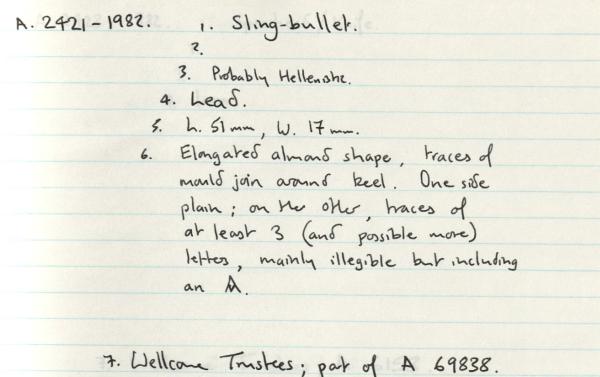 A. 2421-1982. 1. Sling-bullet.
2.
3. Probably Hellenistic.
4. Lead.
5. L. 51 mm, W. 17 mm.
6. Elongated almond shape, traces of
mould join around keel. One side
plain; on the other, traces of
at least 3 (and possible more)
letters, mainly illegible but including
an A.
7. Wellcome Trustees; part of A 69838.